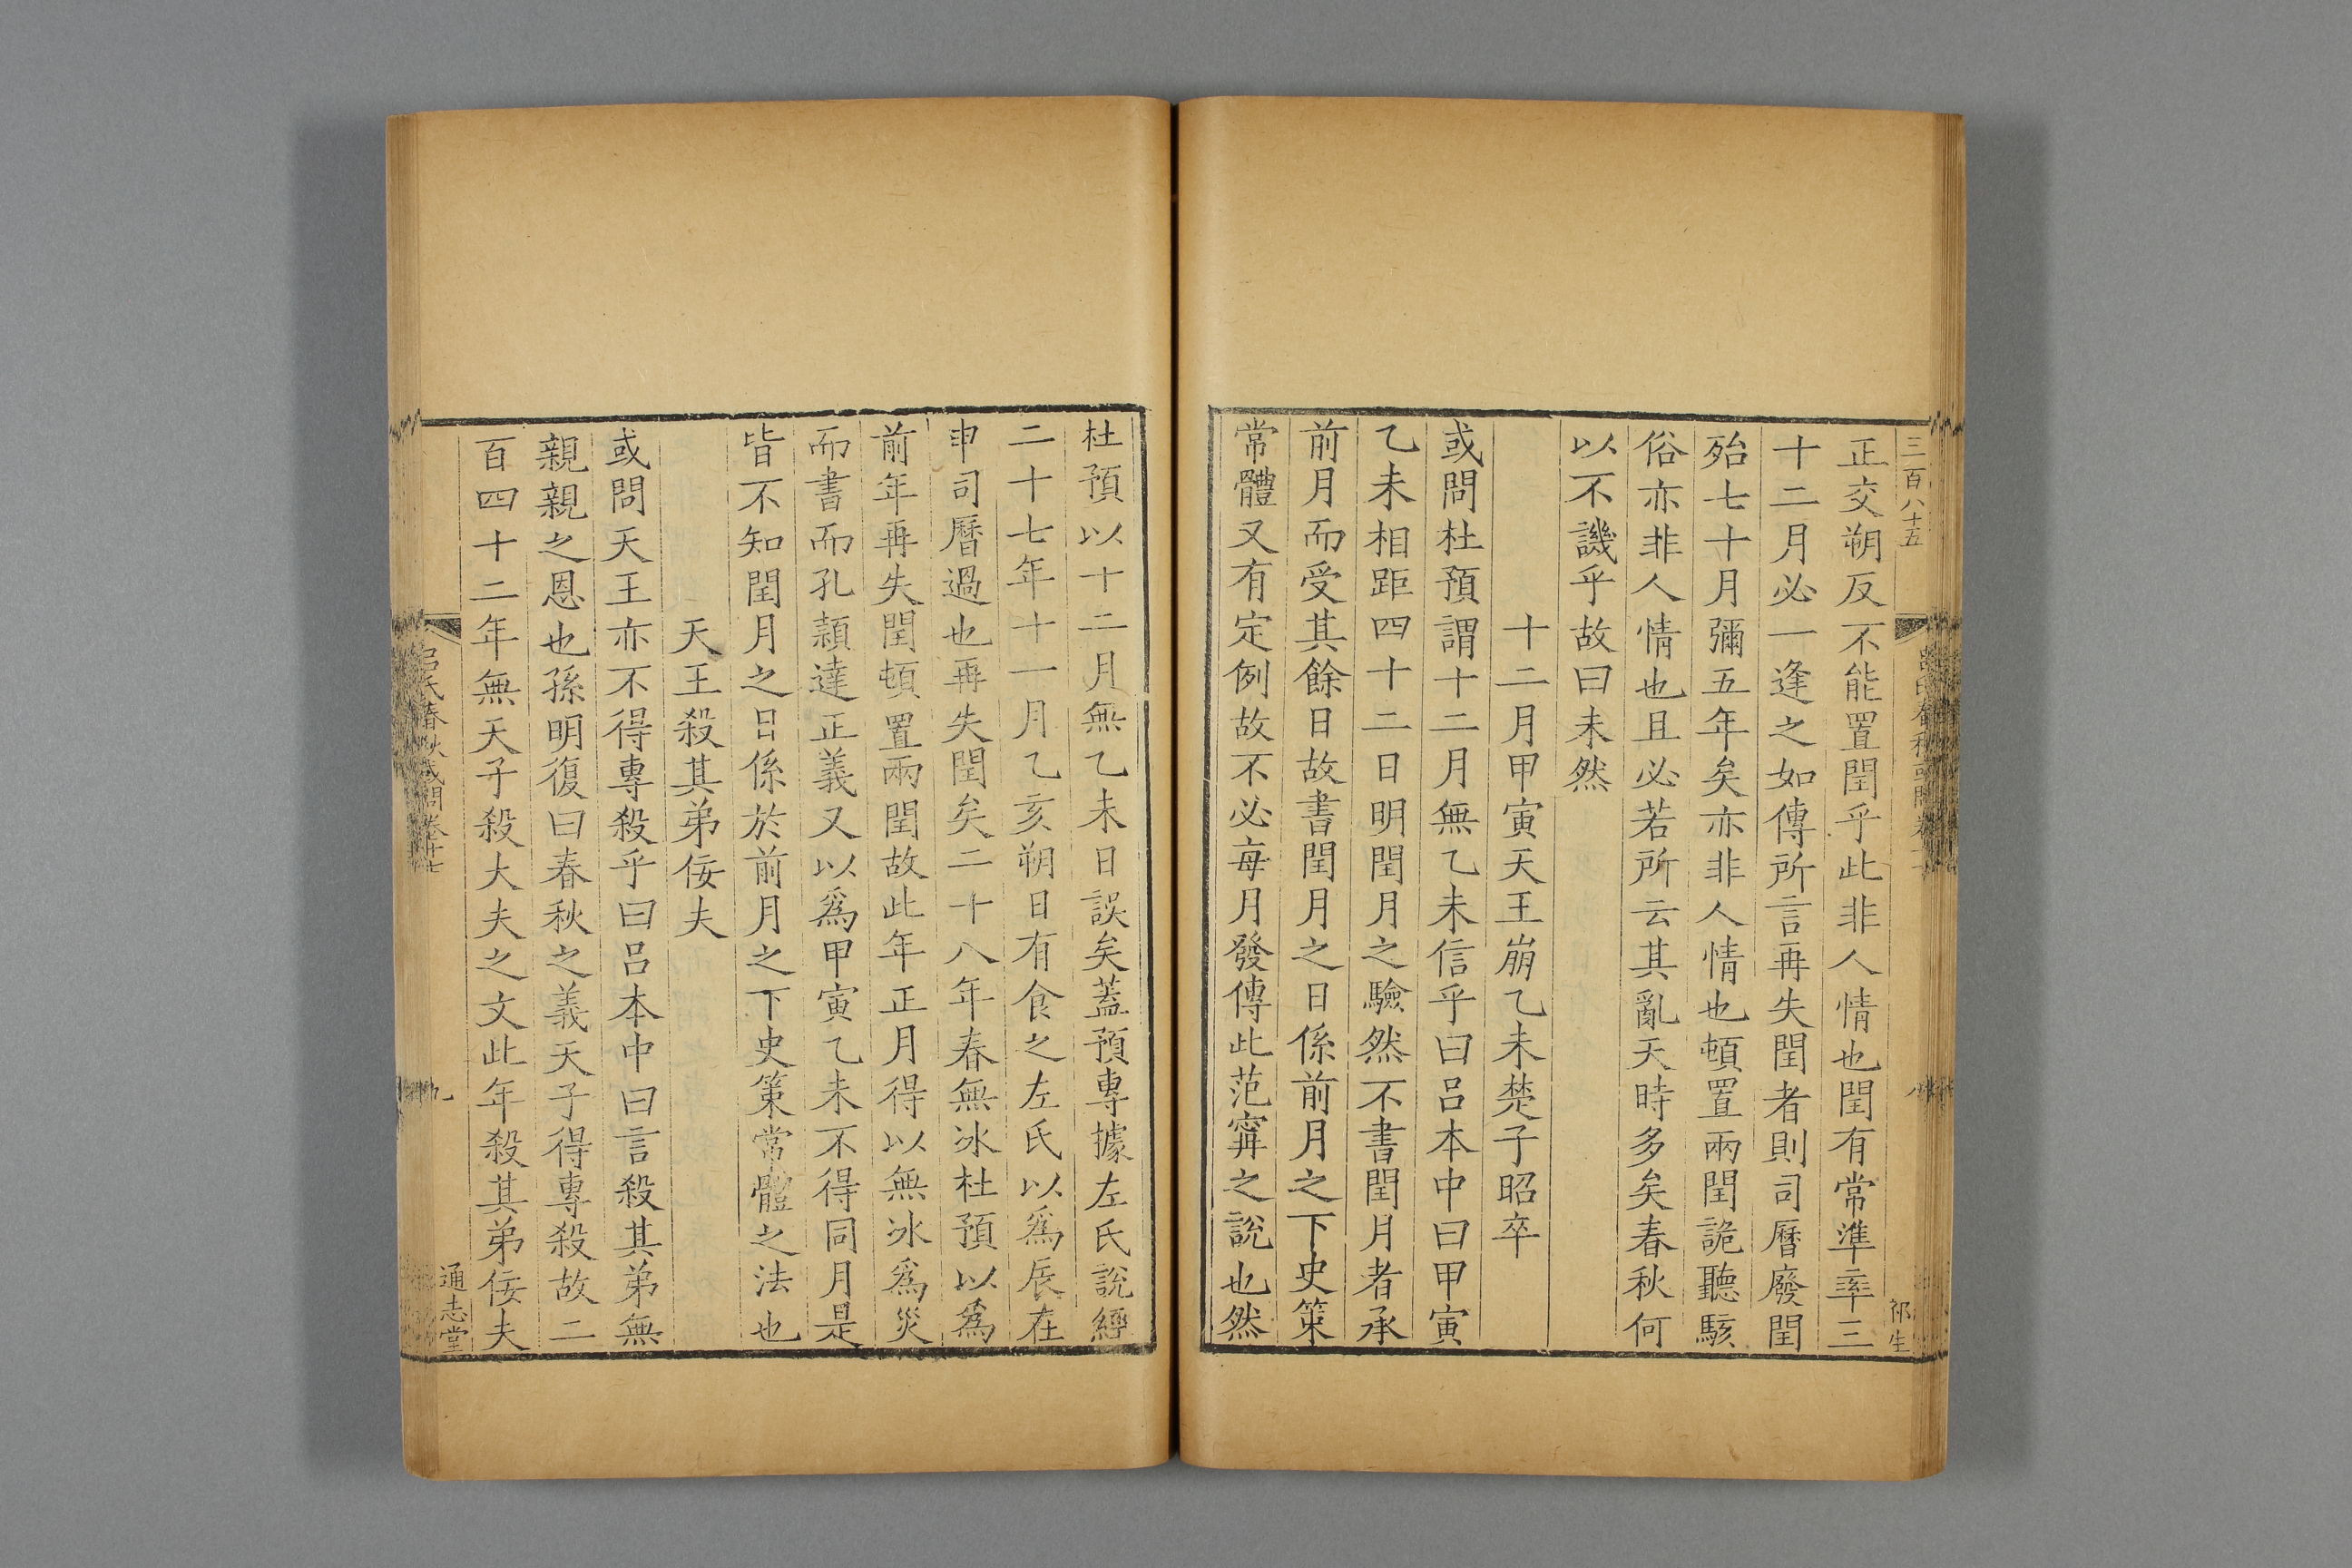 三百八十五
祁生
正交朔反不能置閏乎此非人情也閏有常準率三
十二月必一逢之如傳所言再失閏者則司曆廢閏
殆七十月彌五年矣亦非人情也頓置兩閏詭聽駭
俗亦非人情也且必若所云其亂天時多矣春秋何
以不譏乎故曰未然
十二月甲寅天王崩乙未楚子昭卒
或問杜預謂十二月無乙未信乎曰呂本中曰甲寅
乙未相距四十二日明閏月之驗然不書閏月者承
前月而受其餘日故書閏月之日係前月之下史策
常體又有定例故不必每月發傳此范甯之說也然
杜預以十二月無乙未日誤矣蓋預專據左氏說經
二十七年十一月乙亥朔日有食之左氏以爲辰在
申司曆過也再失閏矣二十八年春無冰杜預以爲
前年再失閏頓置兩閏故此年正月得以無冰爲災
而書而孔穎達正義又以爲甲寅乙未不得同月是
皆不知閏月之日係於前月之下史策常體之法也
天王殺其弟佞夫
或問天王亦不得專殺乎曰呂本中曰言殺其弟無
親親之恩也孫明復曰春秋之義天子得專殺故二
百四十二年無天子殺大夫之文此年殺其弟佞夫
呂氏春秋或問卷十七
九
通志堂